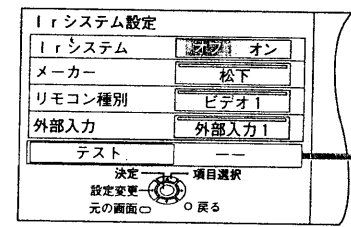 Irシステム設定
Irシステム オフ オン
メーカー 松下
リモコン種別 ビデオ1
外部入力 外部入力1
テスト ーー
決定 項目選択
設定変更
元の画面 戻る